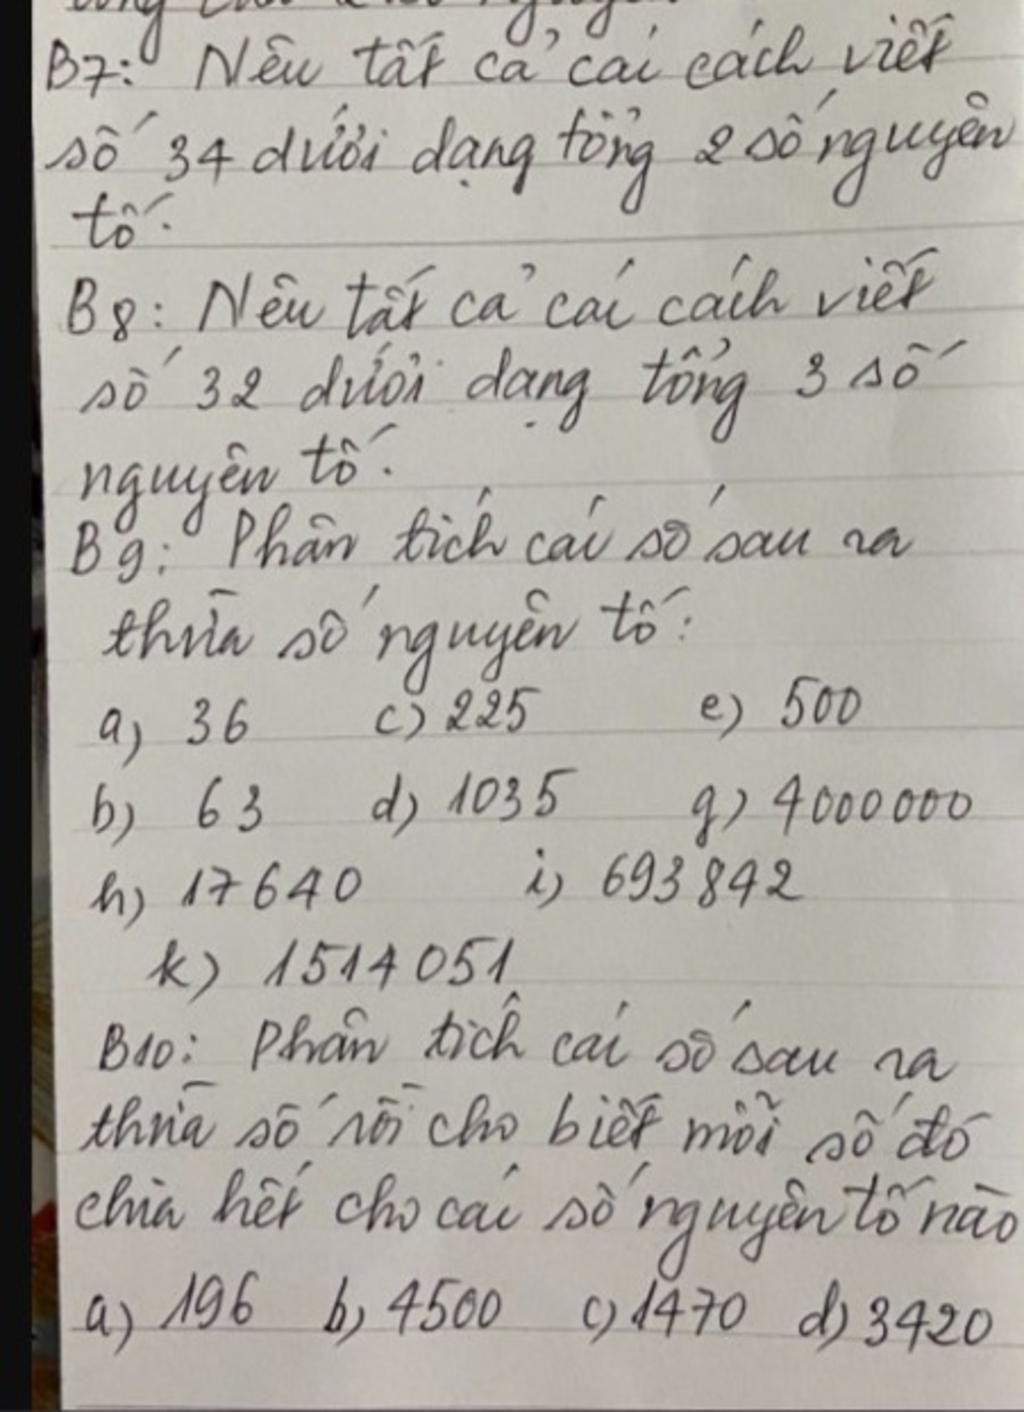 B7: Nêu tất cả các cách viết
số 34 dưới dạng tổng 2 số nguyên
tố.
B8: Nêu tất cả các cách viết
số 32 dưới dạng tổng 3 số
nguyên tố.
B9: Phân tích các số sau ra
thừa số nguyên tố:
a) 36 c) 225 e) 500
b) 63 d) 1035 g) 4000000
h) 17640 i) 693842
k) 1514051
B10: Phân tích các số sau ra
thừa số rồi cho biết mỗi số đó
chia hết cho các số nguyên tố nào
a) 196 b) 4500 c) 1470 d) 3420